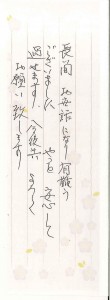 長間 お世話になり有難う
ございました やっと 安心して
過せます。今後共 よろしく
お願い致します